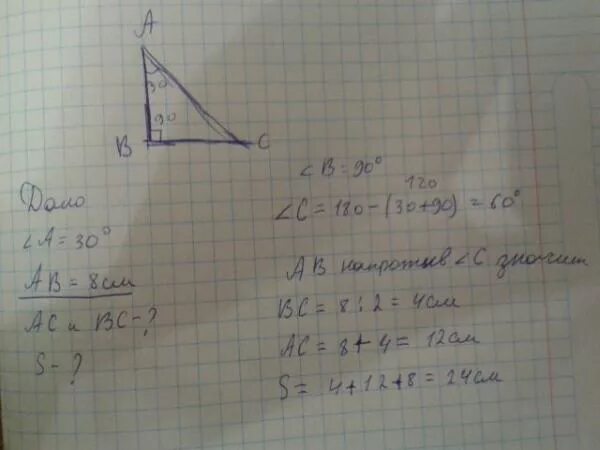 A
30
90
B
C
Дано
∠A = 30°
AB = 8см
AC и BC - ?
S - ?
∠B = 90°
120
∠C = 180 - (30+90) = 60°
AB напротив ∠C значит
BC = 8 : 2 = 4см
AC = 8 + 4 = 12см
S = 4 + 12 + 8 = 24см